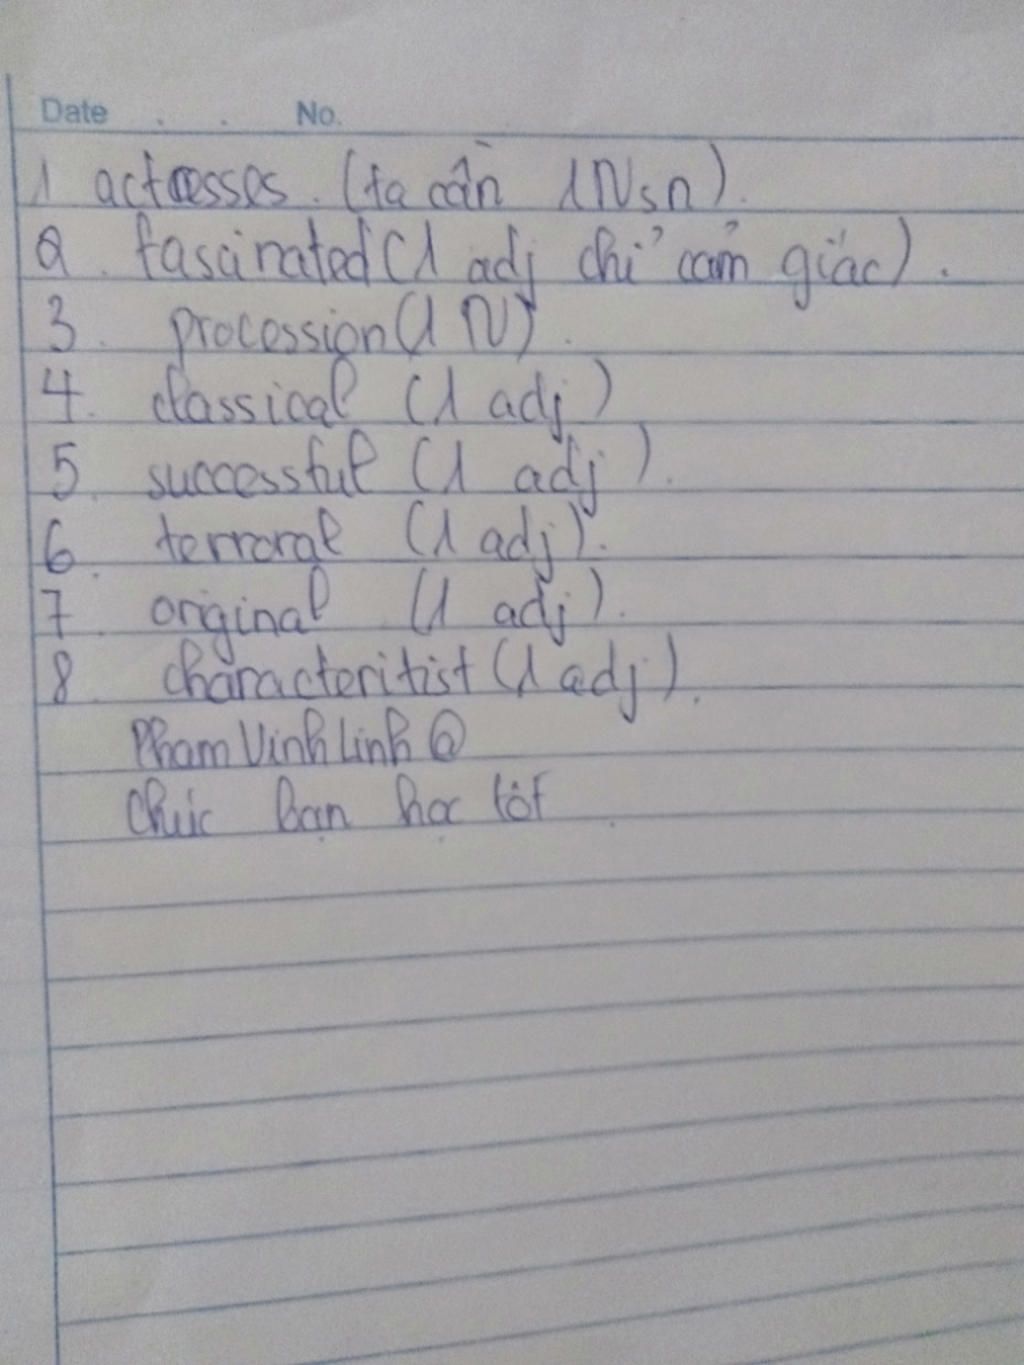 Date . . No.
1 actresses. (ta cần 1 Nsn).
2. fascinated (1 adj chỉ cảm giác).
3. procession (1 N).
4. classical (1 adj)
5. successful (1 adj).
6. terroral (1 adj).
7. original (1 adj).
8. characteritist (1 adj).
Pham Vinh Linh @
Chúc bạn học tốt.